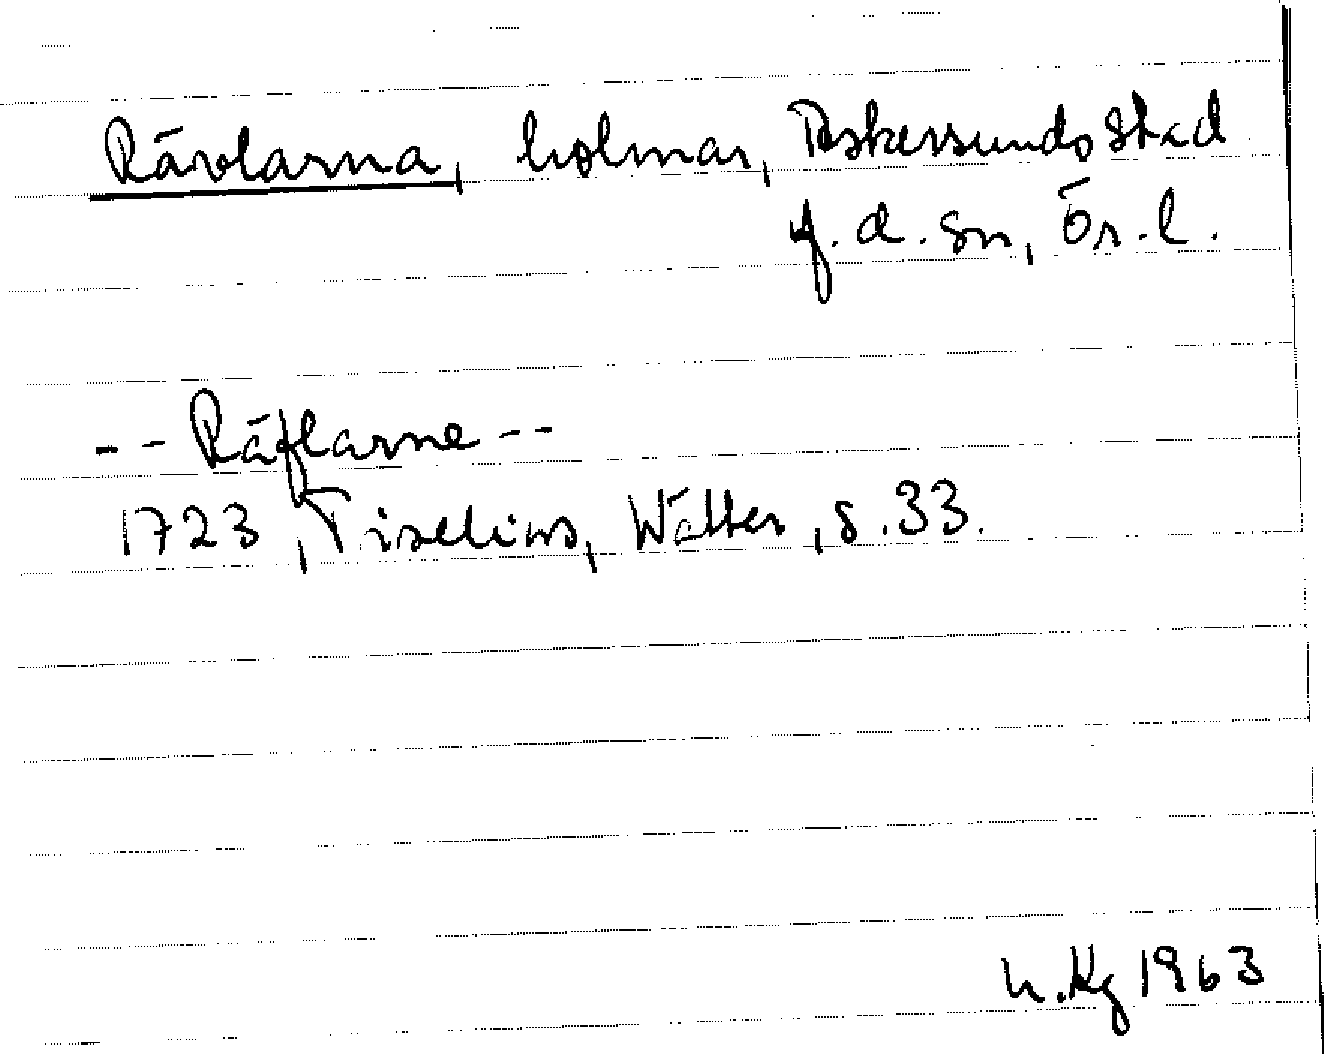 Rävlarna, holmar, Askersunds stad
f.d. sn, Ör. l.
-- Räflarne --
1723, Tiselius, Wätter, s. 33.
h. Kg 1963